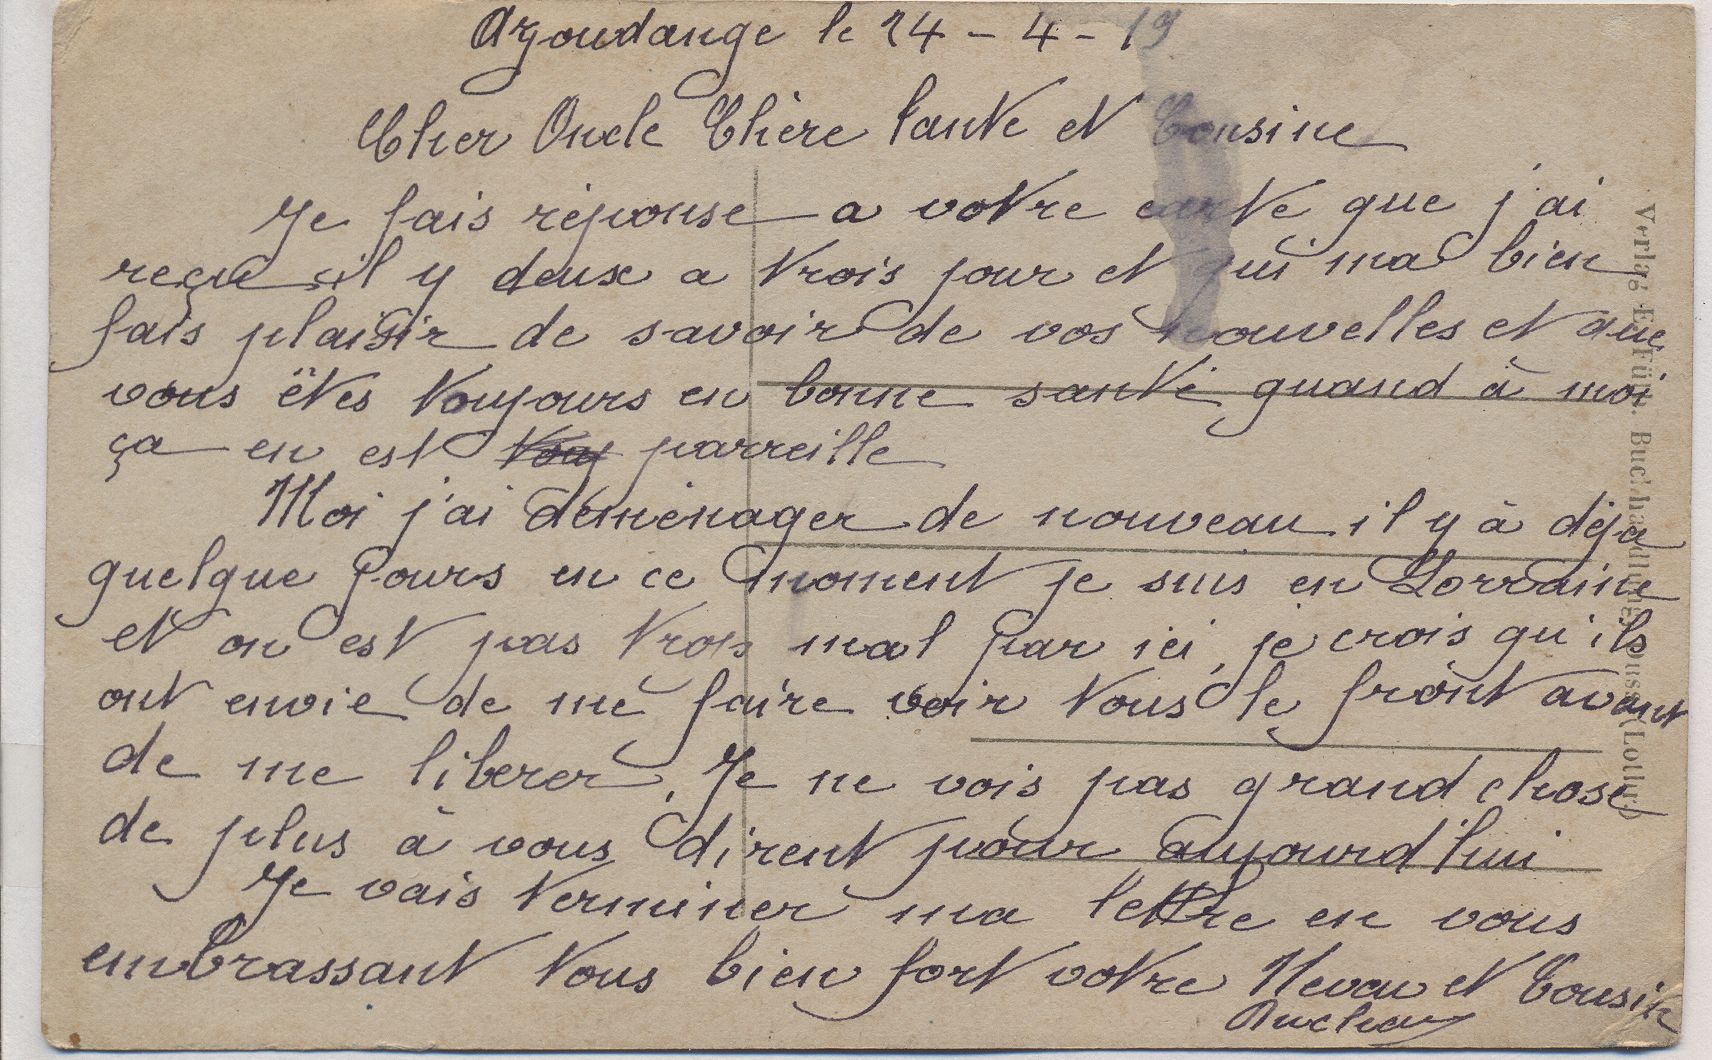 Azoudange le 24 - 4 - 19
Cher Oncle Chère tante et Cousine
Je fais réponse a votre carte que j'ai
reçue il y deux a trois jour et qui ma bien
fais plaisir de savoir de vos nouvelles et que
vous êtes toujours en bonne santé quand à moi
ça en est parreille
Moi j'ai déménager de nouveau il y à déja
quelque jours en ce moment je suis en Lorraine
et on est pas trop mal par ici, je crois qu'ils
ont envie de me faire voir tous le front avant
de me liberer. Je ne vois pas grand chose
de plus à vous dirent pour aujourd'hui
Je vais terminer ma lettre en vous
embrassant tous bien fort votre Neveu et Cousin
Verlag E. Buchhandlung